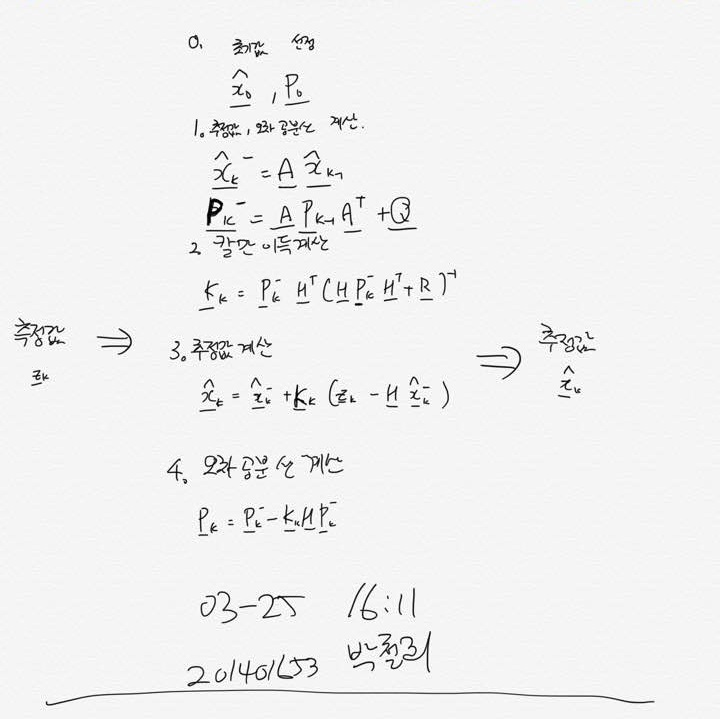 0. 초기값 선정
x̂₀ , P₀
1. 추정값, 오차 공분산 계산.
x̂ₖ⁻ = A x̂ₖ₋₁
Pₖ⁻ = A Pₖ₋₁ Aᵀ + Q
2. 칼만 이득계산
Kₖ = Pₖ⁻ Hᵀ (H Pₖ⁻ Hᵀ + R)⁻¹
측정값 ⇒
zₖ
3. 추정값 계산
x̂ₖ = x̂ₖ⁻ + Kₖ (zₖ - H x̂ₖ⁻)
⇒ 추정값
x̂ₖ
4. 오차 공분산 계산
Pₖ = Pₖ⁻ - KₖHPₖ⁻
03-25 16:11
201401653